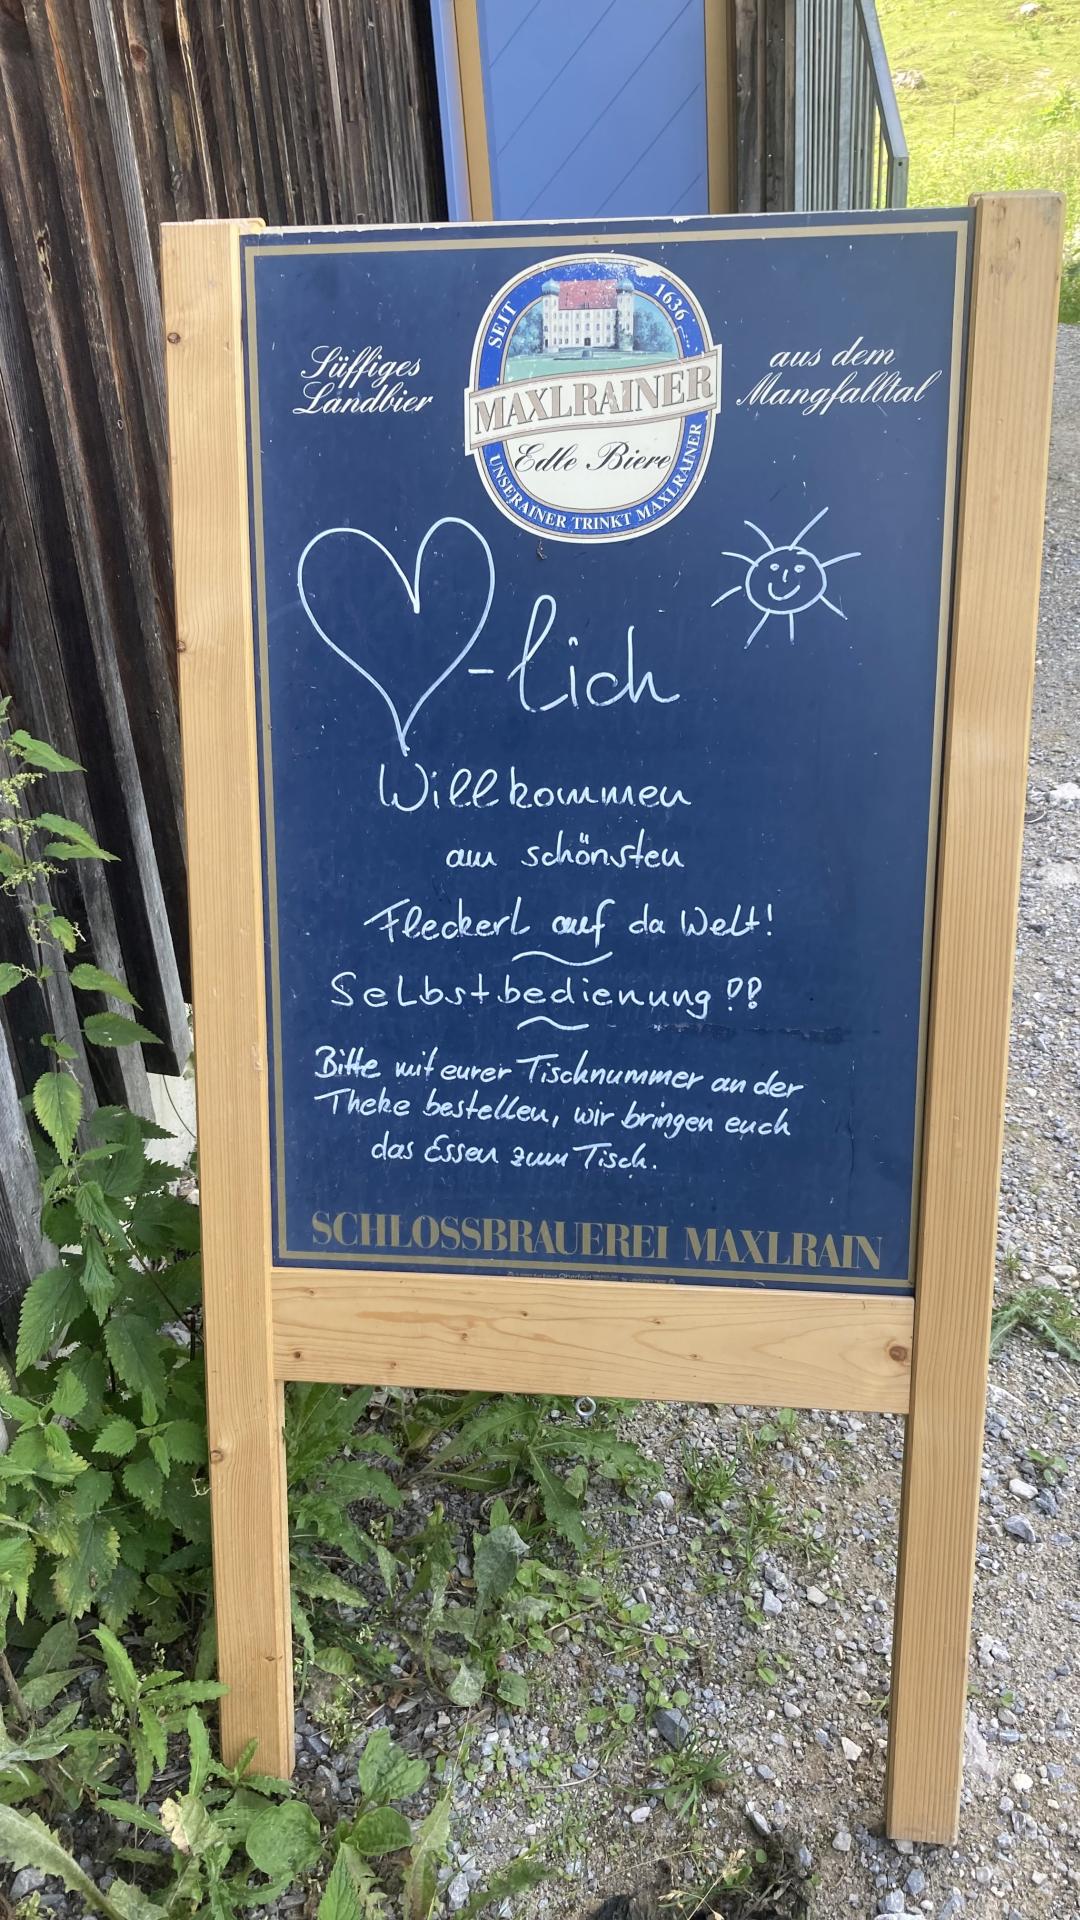 SEIT 1636
Süffiges
Landbier
MAXLRAINER
Edle Biere
UNSERAINER TRINKT MAXLRAINER
aus dem
Mangfalltal
-lich
Willkommen
am schönsten
Fleckerl auf da Welt!
Selbstbedienung!!
Bitte mit eurer Tischnummer an der
Theke bestellen, wir bringen euch
das Essen zum Tisch.
SCHLOSSBRAUEREI MAXLRAIN